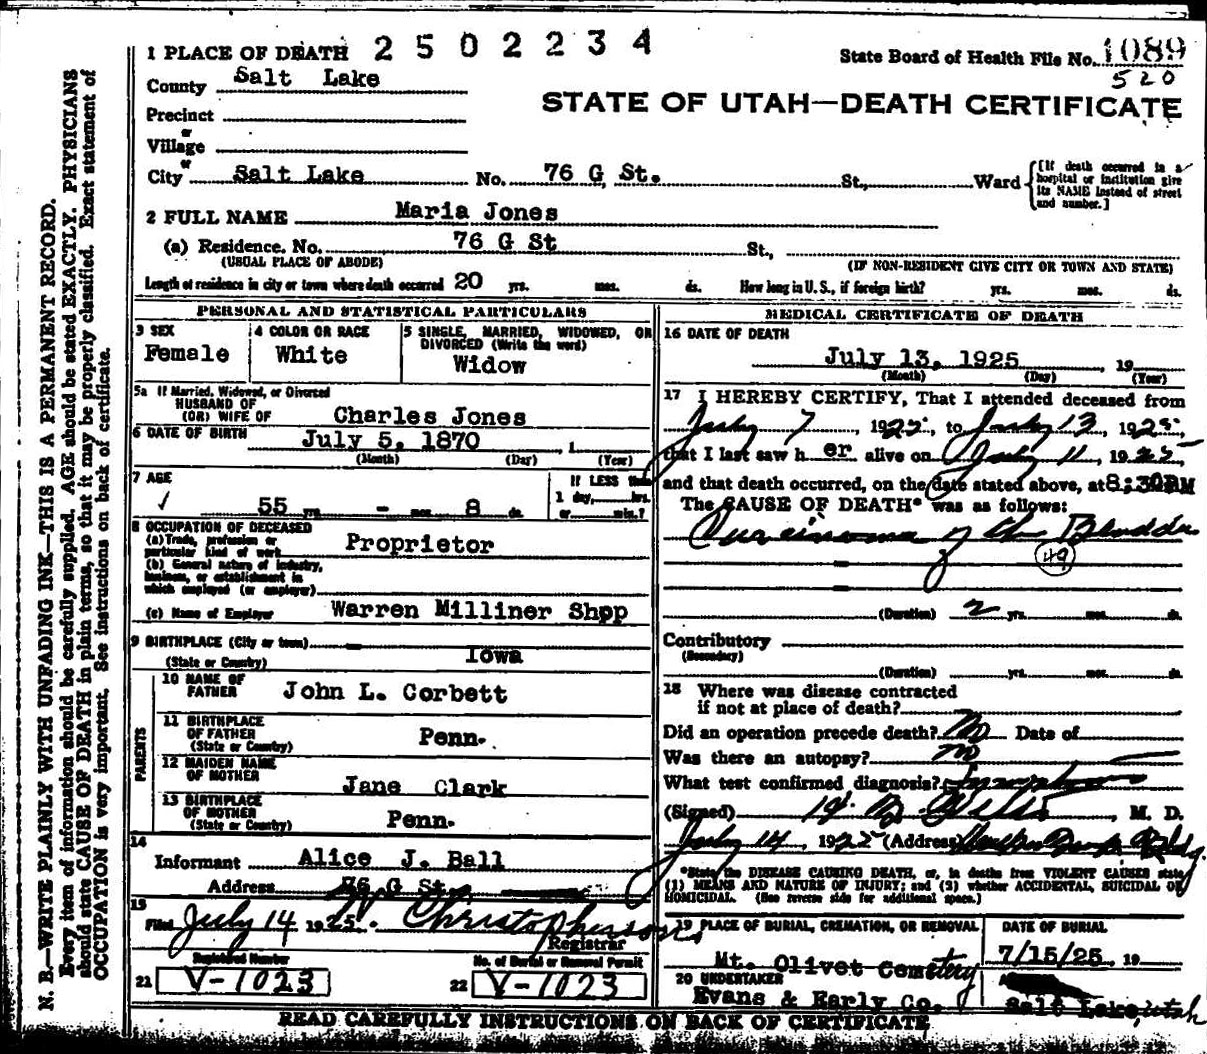 N. B.—WRITE PLAINLY WITH UNFADING INK—THIS IS A PERMANENT RECORD.
Every item of information should be carefully supplied. AGE should be stated EXACTLY. PHYSICIANS
should state CAUSE OF DEATH in plain terms, so that it may be properly classified. Exact statement of
OCCUPATION is very important. See instructions on back of certificate.
1 PLACE OF DEATH 2502234
State Board of Health File No. 1089
520
County Salt Lake
STATE OF UTAH—DEATH CERTIFICATE
Precinct
or
Village
or
City Salt Lake No. 76 G St. St., Ward
[If death occurred in a
hospital or institution give
its NAME instead of street
and number.]
2 FULL NAME Maria Jones
(a) Residence. No. 76 G St St.,
(USUAL PLACE OF ABODE) (IF NON-RESIDENT GIVE CITY OR TOWN AND STATE)
Length of residence in city or town where death occurred 20 yrs. mos. ds. How long in U. S., if foreign birth? yrs. mos. ds.
PERSONAL AND STATISTICAL PARTICULARS
3 SEX
Female
4 COLOR OR RACE
White
5 SINGLE, MARRIED, WIDOWED, OR
DIVORCED (Write the word)
Widow
5a If Married, Widowed, or Divorced
HUSBAND OF
(OR) WIFE OF Charles Jones
6 DATE OF BIRTH July 5, 1870, 1
(Month) (Day) (Year)
7 AGE
55 yrs. - mos. 8 ds.
If LESS than
1 day, hrs.
or min.?
8 OCCUPATION OF DECEASED
(a) Trade, profession or
particular kind of work Proprietor
(b) General nature of industry,
business, or establishment in
which employed (or employer)
(c) Name of Employer Warren Milliner Shop
9 BIRTHPLACE (City or town)
(State or Country) Iowa
PARENTS
10 NAME OF
FATHER John L. Corbett
11 BIRTHPLACE
OF FATHER
(State or Country) Penn.
12 MAIDEN NAME
OF MOTHER Jane Clark
13 BIRTHPLACE
OF MOTHER
(State or Country) Penn.
14
Informant Alice J. Ball
Address 76 G St.
15
Filed July 14 1925. Christopherson
Registrar
Registered Number
21 V-1023
No. of Burial or Removal Permit
22 V-1023
MEDICAL CERTIFICATE OF DEATH
16 DATE OF DEATH
July 13, 1925, 19
(Month) (Day) (Year)
17 I HEREBY CERTIFY, That I attended deceased from
July 7, 1925, to July 13, 1925,
that I last saw h er alive on July 11, 1925,
and that death occurred, on the date stated above, at 8:30PM
The CAUSE OF DEATH* was as follows:
Carcinoma of the Bladder
49
(Duration) 2 yrs. mos. ds.
Contributory
(Secondary)
(Duration) yrs. mos. ds.
18 Where was disease contracted
if not at place of death?
Did an operation precede death? No Date of
Was there an autopsy? no
What test confirmed diagnosis? Symptoms
(Signed) , M. D.
July 14, 1925 (Address) Bldg.
*State the DISEASE CAUSING DEATH, or, in deaths from VIOLENT CAUSES state
(1) MEANS AND NATURE OF INJURY; and (2) whether ACCIDENTAL, SUICIDAL OR
HOMICIDAL. (See reverse side for additional space.)
19 PLACE OF BURIAL, CREMATION, OR REMOVAL
Mt. Olivet Cemetery
DATE OF BURIAL
7/15/25, 19
20 UNDERTAKER
Evans & Early Co.
Salt Lake, Utah
READ CAREFULLY INSTRUCTIONS ON BACK OF CERTIFICATE